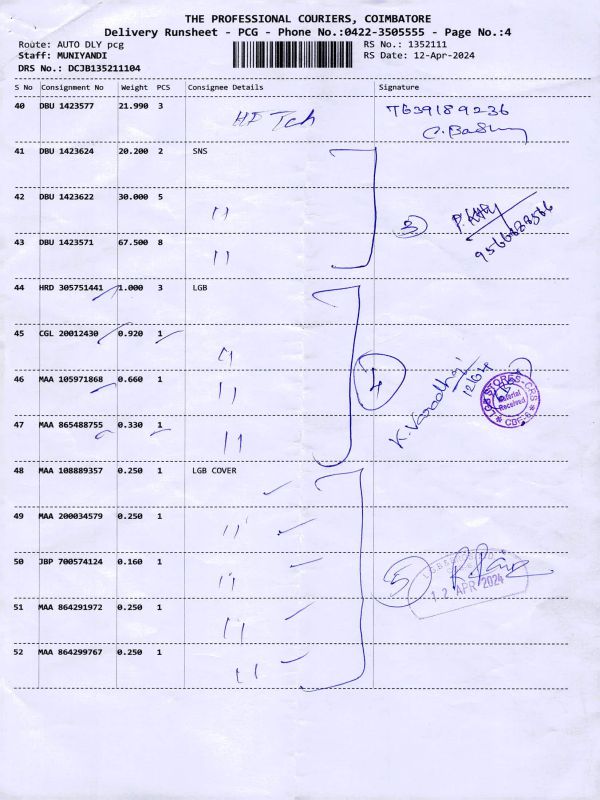 THE PROFESSIONAL COURIERS, COIMBATORE
Delivery Runsheet - PCG - Phone No.:0422-3505555 - Page No.:4
Route: AUTO DLY pcg RS No.: 1352111
Staff: MUNIYANDI RS Date: 12-Apr-2024
DRS No.: DCJB135211104
S No Consignment No Weight PCS Consignee Details Signature
40 DBU 1423577 21.990 3
41 DBU 1423624 20.200 2 SNS
42 DBU 1423622 30.000 5 "
3
43 DBU 1423571 67.500 8 "
44 HRD 305751441 1.000 3 LGB
45 CGL 20012430 0.920 1 "
46 MAA 105971868 0.660 1 "
4
12/04
LGB STORES-CRS
Material
Received
CBE-6
47 MAA 865488755 0.330 1 "
48 MAA 108889357 0.250 1 LGB COVER
49 MAA 200034579 0.250 1 "
50 JBP 700574124 0.160 1 "
5
12 APR 2024
51 MAA 864291972 0.250 1 "
52 MAA 864299767 0.250 1 "